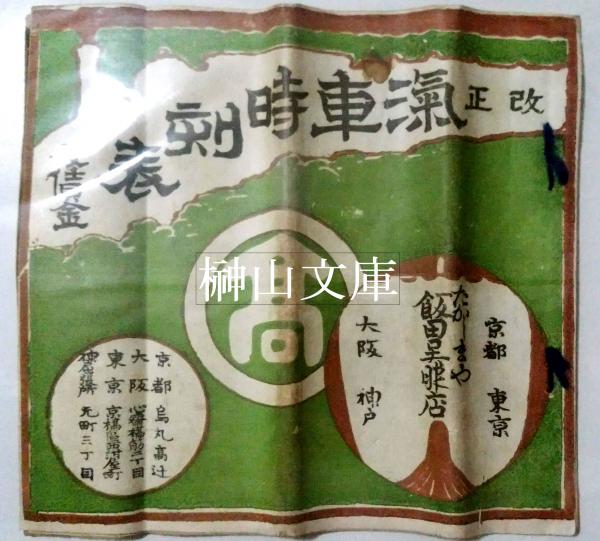 改正
汽車時刻表
賃金
高
榊山文庫
京都 東京
たかしまや
飯田呉服店
大阪 神戸
京都 烏丸高辻
大阪 心斎橋筋二丁目
東京 京橋区西紺屋町
神戸 元町三丁目